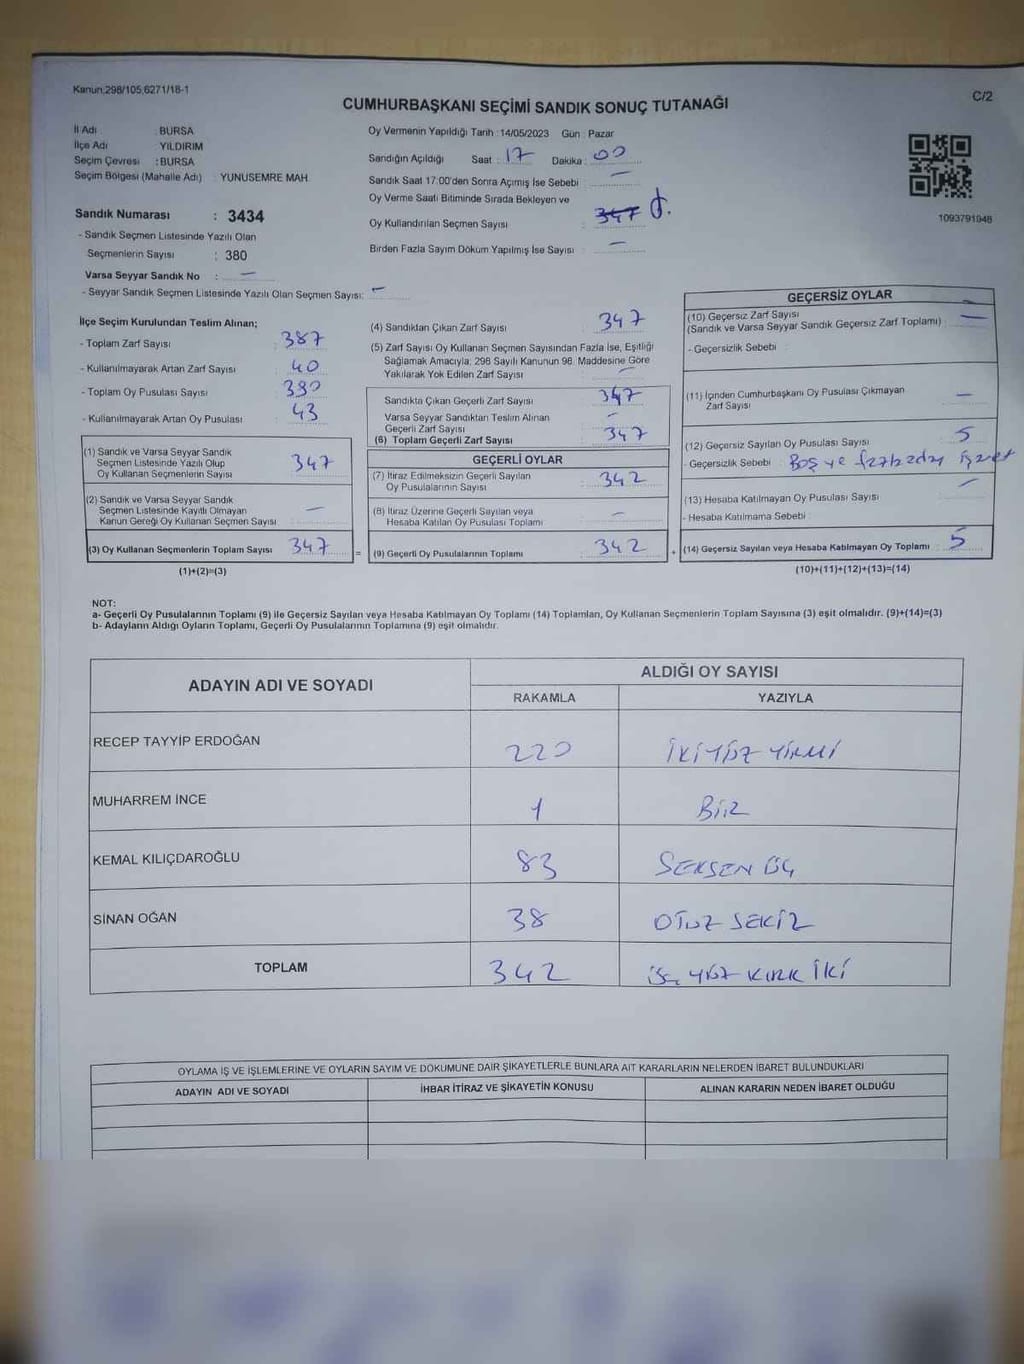 Kanun;298/105,6271/18-1
C/2
CUMHURBAŞKANI SEÇİMİ SANDIK SONUÇ TUTANAĞI
İl Adı : BURSA
İlçe Adı : YILDIRIM
Seçim Çevresi : BURSA
Seçim Bölgesi (Mahalle Adı) : YUNUSEMRE MAH.
Sandık Numarası : 3434
- Sandık Seçmen Listesinde Yazılı Olan
Seçmenlerin Sayısı : 380
Varsa Seyyar Sandık No : —
- Seyyar Sandık Seçmen Listesinde Yazılı Olan Seçmen Sayısı: —
Oy Vermenin Yapıldığı Tarih : 14/05/2023 Gün : Pazar
Sandığın Açıldığı Saat : 17 Dakika : 00
Sandık Saat 17:00'den Sonra Açımış İse Sebebi : —
Oy Verme Saati Bitiminde Sırada Bekleyen ve
Oy Kullandırılan Seçmen Sayısı : 347
Birden Fazla Sayım Döküm Yapılmış İse Sayısı : —
1093791948
İlçe Seçim Kurulundan Teslim Alınan;
- Toplam Zarf Sayısı : 387
- Kullanılmayarak Artan Zarf Sayısı : 40
- Toplam Oy Pusulası Sayısı : 390
- Kullanılmayarak Artan Oy Pusulası : 43
(1) Sandık ve Varsa Seyyar Sandık
Seçmen Listesinde Yazılı Olup
Oy Kullanan Seçmenlerin Sayısı 347
(2) Sandık ve Varsa Seyyar Sandık
Seçmen Listesinde Kayıtlı Olmayan
Kanun Gereği Oy Kullanan Seçmen Sayısı —
(3) Oy Kullanan Seçmenlerin Toplam Sayısı 347
(1)+(2)=(3)
(4) Sandıktan Çıkan Zarf Sayısı : 347
(5) Zarf Sayısı Oy Kullanan Seçmen Sayısından Fazla İse, Eşitliği
Sağlamak Amacıyla; 298 Sayılı Kanunun 98. Maddesine Göre
Yakılarak Yok Edilen Zarf Sayısı : —
Sandıkta Çıkan Geçerli Zarf Sayısı : 347
Varsa Seyyar Sandıktan Teslim Alınan
Geçerli Zarf Sayısı : —
(6) Toplam Geçerli Zarf Sayısı : 347
GEÇERLİ OYLAR
(7) İtiraz Edilmeksizin Geçerli Sayılan
Oy Pusulalarının Sayısı : 342
(8) İtiraz Üzerine Geçerli Sayılan veya
Hesaba Katılan Oy Pusulası Toplamı : —
= (9) Geçerli Oy Pusulalarının Toplamı : 342
GEÇERSİZ OYLAR
(10) Geçersiz Zarf Sayısı
(Sandık ve Varsa Seyyar Sandık Geçersiz Zarf Toplamı) : —
- Geçersizlik Sebebi :
(11) İçinden Cumhurbaşkanı Oy Pusulası Çıkmayan
Zarf Sayısı : —
(12) Geçersiz Sayılan Oy Pusulası Sayısı : 5
- Geçersizlik Sebebi : Boş ve fazladan işaret
(13) Hesaba Katılmayan Oy Pusulası Sayısı : —
- Hesaba Katılmama Sebebi :
+ (14) Geçersiz Sayılan veya Hesaba Katılmayan Oy Toplamı : 5
(10)+(11)+(12)+(13)=(14)
NOT:
a- Geçerli Oy Pusulalarının Toplamı (9) ile Geçersiz Sayılan veya Hesaba Katılmayan Oy Toplamı (14) Toplamları, Oy Kullanan Seçmenlerin Toplam Sayısına (3) eşit olmalıdır. (9)+(14)=(3)
b- Adayların Aldığı Oyların Toplamı, Geçerli Oy Pusulalarının Toplamına (9) eşit olmalıdır.
ADAYIN ADI VE SOYADI ALDIĞI OY SAYISI
RAKAMLA YAZIYLA
RECEP TAYYİP ERDOĞAN 220 İKİYÜZ YİRMİ
MUHARREM İNCE 1 BİR
KEMAL KILIÇDAROĞLU 83 SEKSEN ÜÇ
SİNAN OĞAN 38 OTUZ SEKİZ
TOPLAM 342 ÜÇ YÜZ KIRK İKİ
OYLAMA İŞ VE İŞLEMLERİNE VE OYLARIN SAYIM VE DÖKÜMÜNE DAİR ŞİKAYETLERLE BUNLARA AİT KARARLARIN NELERDEN İBARET BULUNDUKLARI
ADAYIN ADI VE SOYADI İHBAR İTİRAZ VE ŞİKAYETİN KONUSU ALINAN KARARIN NEDEN İBARET OLDUĞU